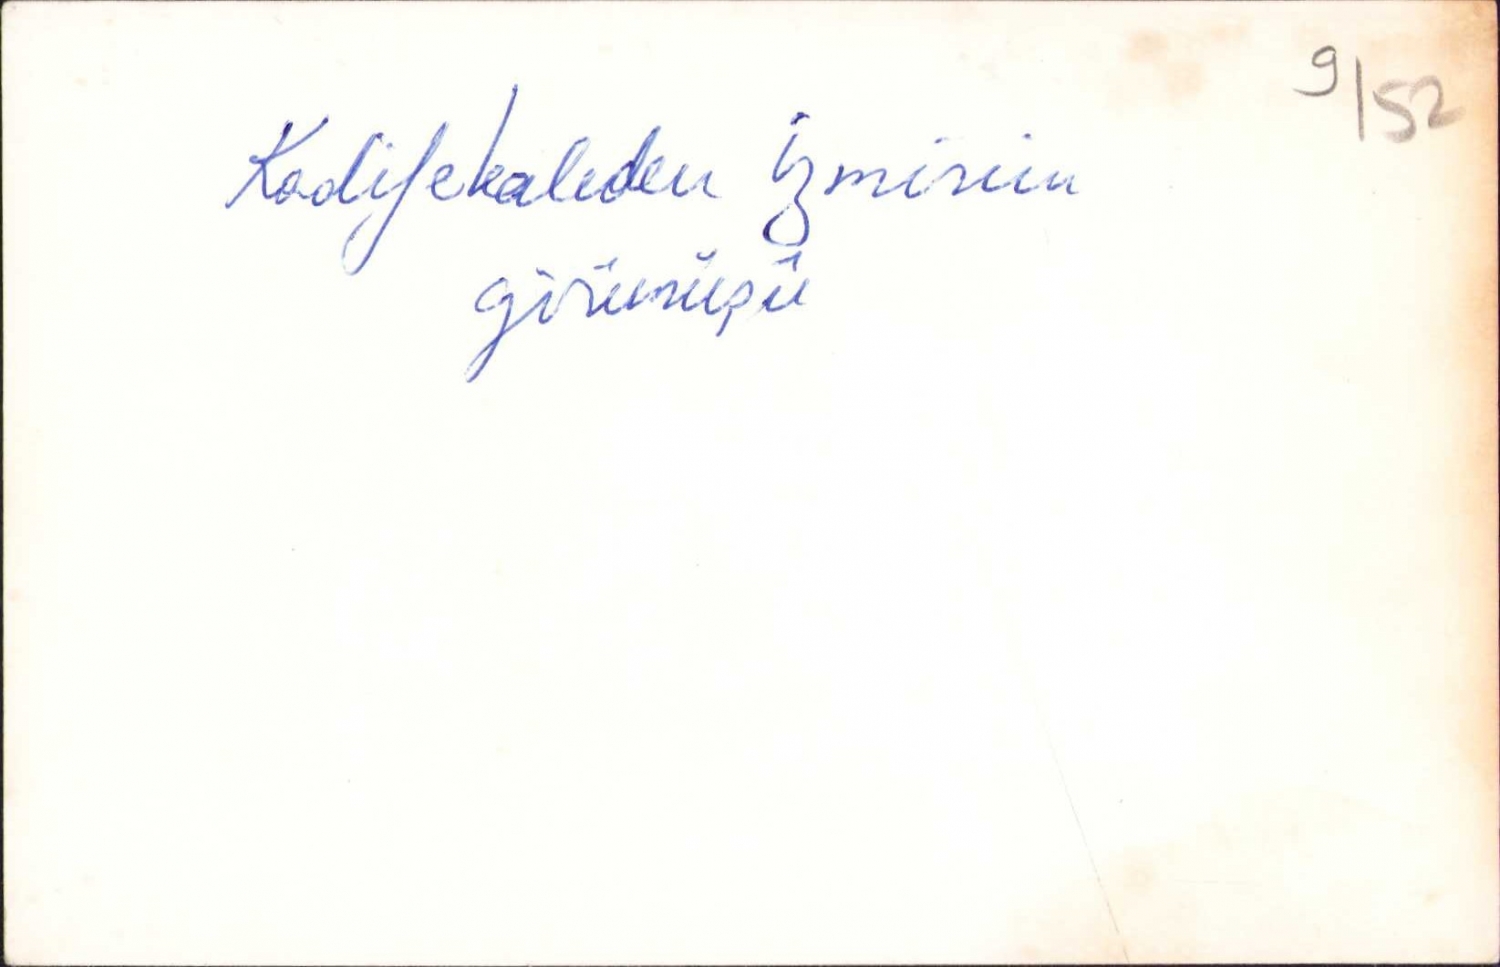 9/52
Kadifekaleden İzmirin
görünüşü